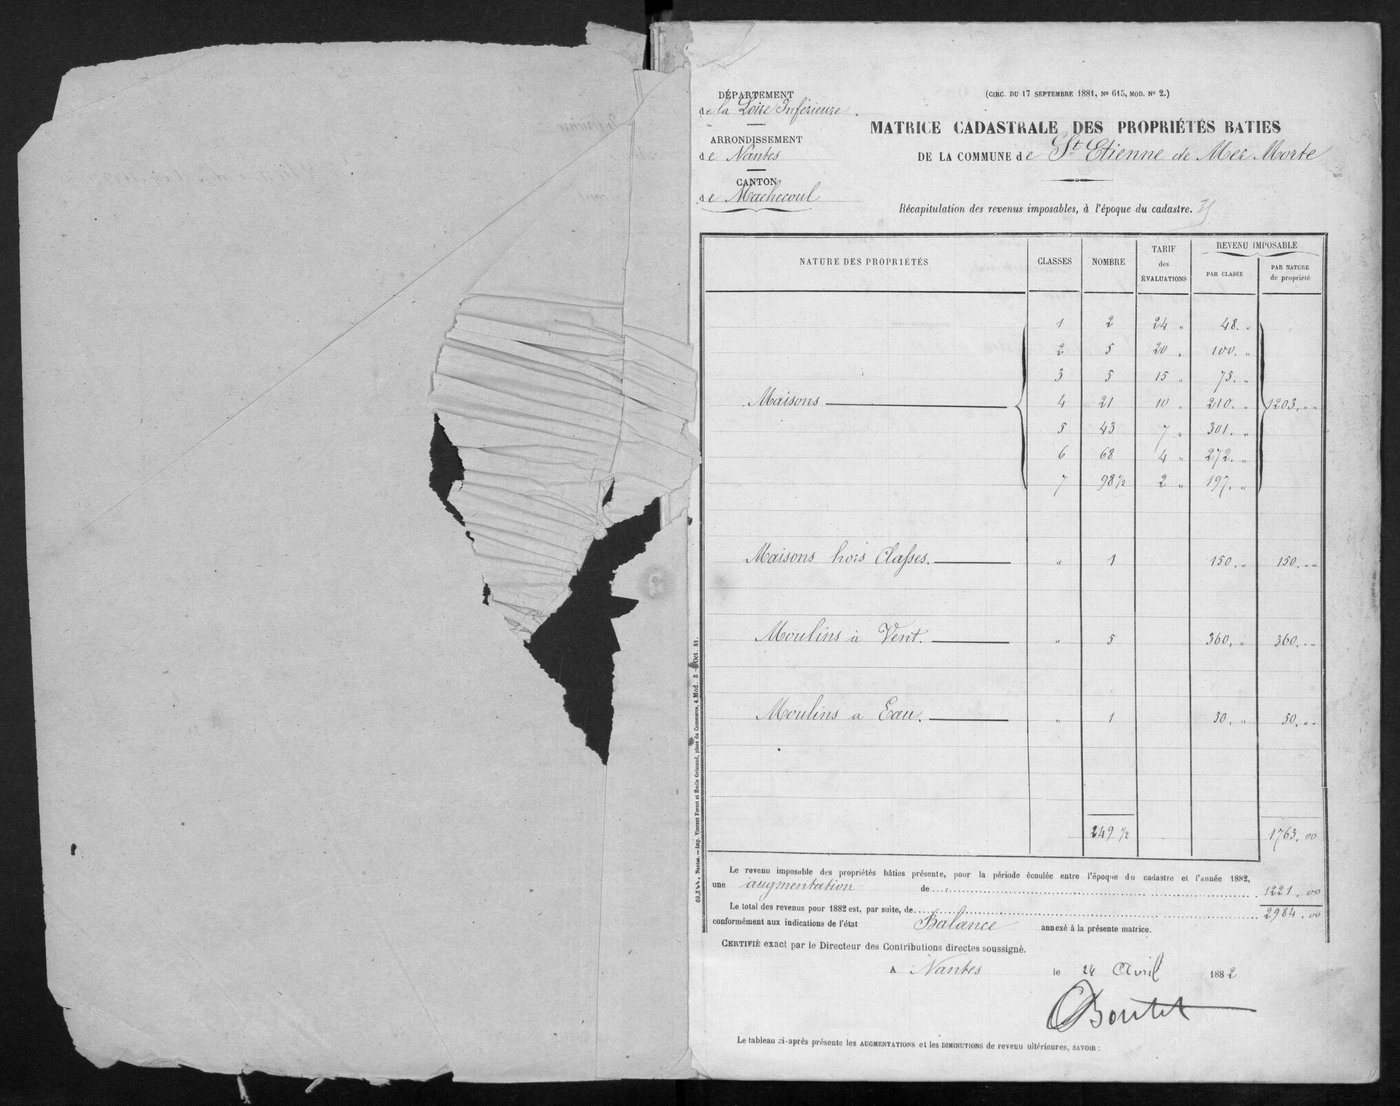 (CIRC. DU 17 SEPTEMBRE 1881, No 615, MOD. No 2.)
DÉPARTEMENT
de la Loire Inférieure.
ARRONDISSEMENT
de Nantes
CANTON
de Machecoul
MATRICE CADASTRALE DES PROPRIÉTÉS BATIES
DE LA COMMUNE de St Etienne de Mer Morte
Récapitulation des revenus imposables, à l'époque du cadastre.
NATURE DES PROPRIÉTÉS CLASSES NOMBRE TARIF des ÉVALUATIONS REVENU IMPOSABLE
PAR CLASSE PAR NATURE de propriété
1 2 24 " 48. "
2 5 20 " 100. "
3 5 15 " 75. "
Maisons 4 21 10 " 210. " 1203. " "
5 43 7 " 301. "
6 68 4 " 272. "
7 98 1/2 2 " 197. "
Maisons hors Classes. " 1 150. " 150. " "
Moulins à Vent. " 5 360. " 360. " "
Moulins a Eau. " 1 50. " 50. " "
249 1/2 1763. 00
Le revenu imposable des propriétés bâties présente, pour la période écoulée entre l'époque du cadastre et l'année 1882,
une augmentation de 1221. 00
Le total des revenus pour 1882 est, par suite, de 2984. 00
conformément aux indications de l'état Balance annexé à la présente matrice.
CERTIFIÉ exact par le Directeur des Contributions directes soussigné.
A Nantes le 24 Avril 1882
Boutet
Le tableau ci-après présente les AUGMENTATIONS et les DIMINUTIONS de revenu ultérieures, SAVOIR :
Nantes. — Imp. Vincent Forest et Emile Grimaud, place du Commerce, 4. Mod. 5 — Oct. 81.